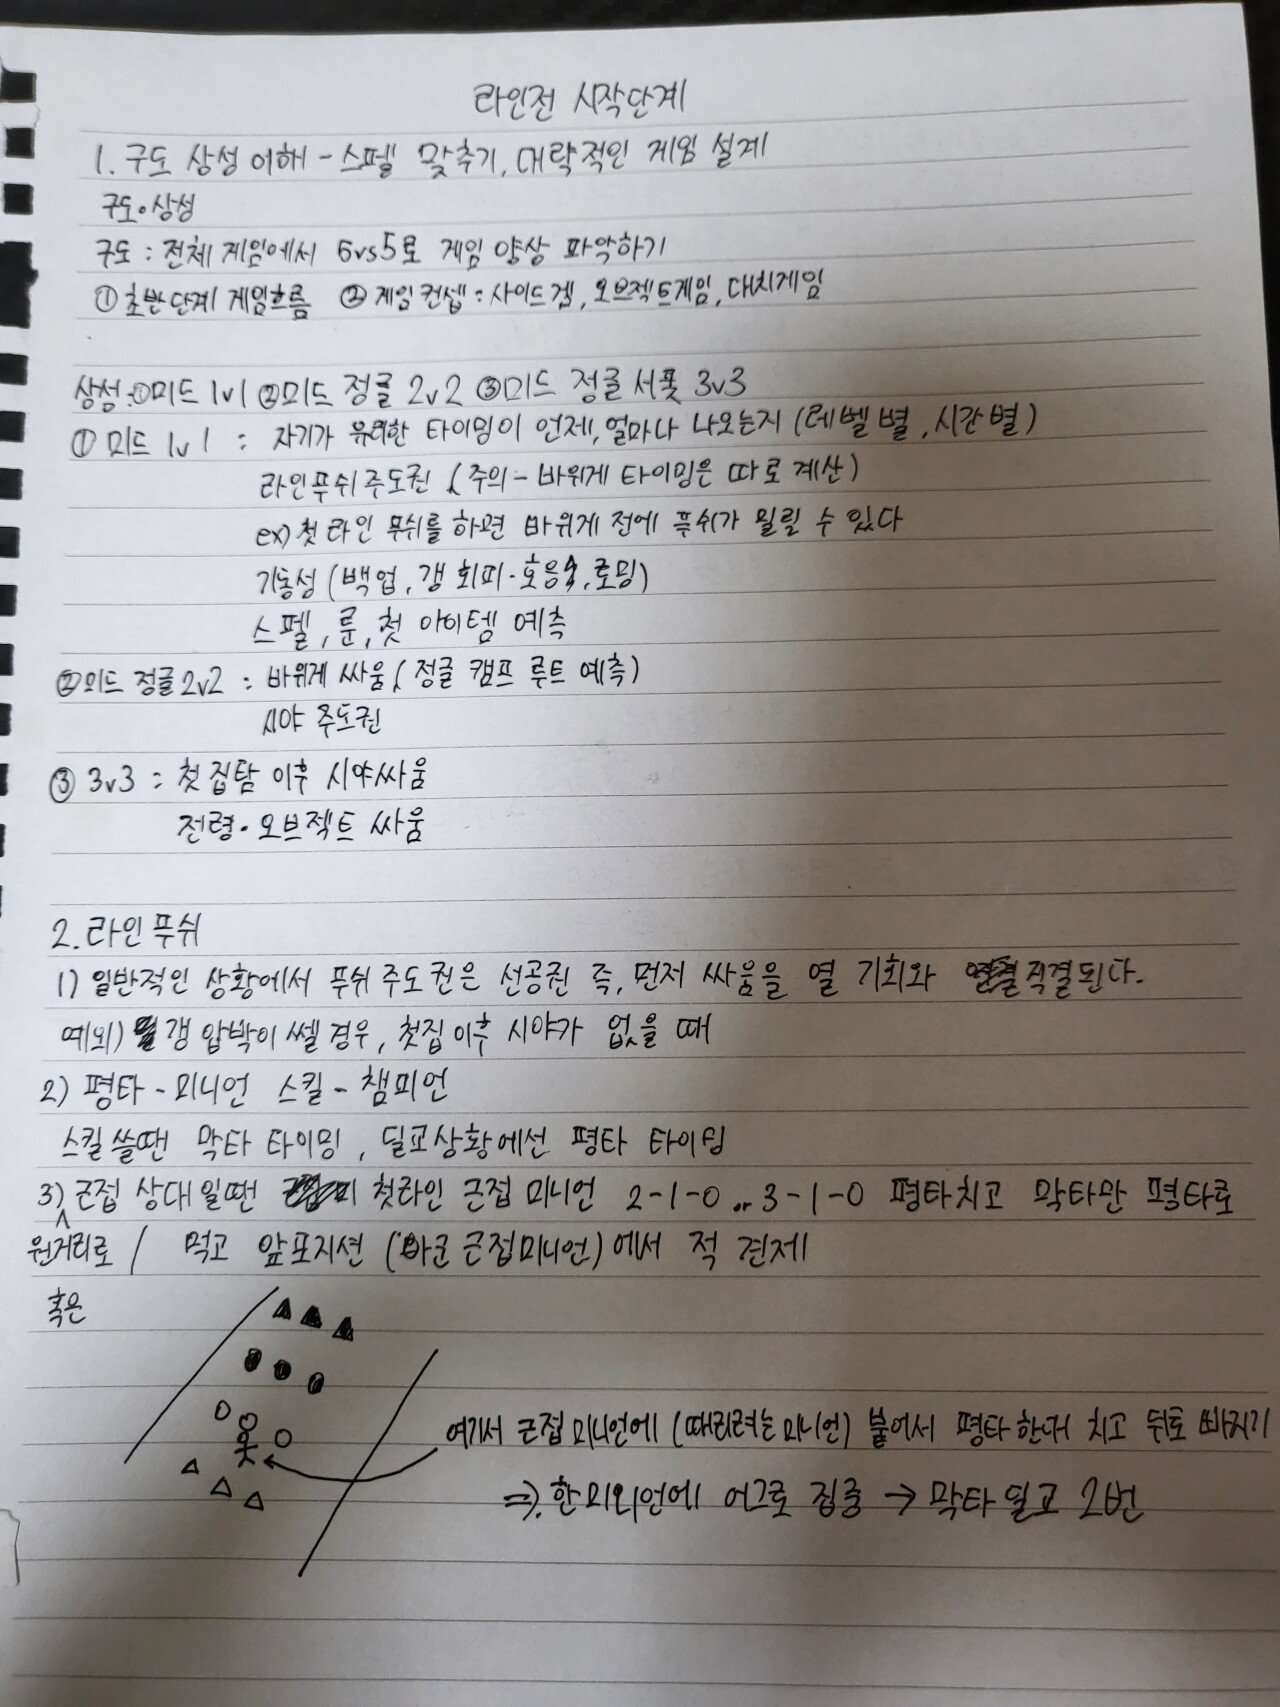 라인전 시작단계
1. 구도 상성 이해 - 스펠 맞추기, 대략적인 게임 설계
구도·상성
구도 : 전체 게임에서 5vs5로 게임 양상 파악하기
① 초반 단계 게임흐름 ② 게임 컨셉 : 사이드겜, 오브젝트게임, 대치게임
상성:①미드 1v1 ②미드 정글 2v2 ③미드 정글 서폿 3v3
① 미드 1v1 : 자기가 유리한 타이밍이 언제, 얼마나 나오는지 (레벨별, 시간별)
라인푸쉬 주도권 (주의 - 바위게 타이밍은 따로 계산)
ex) 첫 라인 푸쉬를 하면 바위게 전에 푸쉬가 밀릴 수 있다
기동성 (백업, 갱 회피·호응, 로밍)
스펠, 룬, 첫 아이템 예측
②미드 정글 2v2 : 바위게 싸움 (정글 캠프 루트 예측)
시야 주도권
③ 3v3 : 첫 집탐 이후 시야싸움
전령·오브젝트 싸움
2. 라인 푸쉬
1) 일반적인 상황에서 푸쉬 주도권은 선공권 즉, 먼저 싸움을 열 기회와 직결된다.
예외) 갱 압박이 쎌 경우, 첫집 이후 시야가 없을 때
2) 평타 - 미니언 스킬 - 챔피언
스킬 쓸땐 막타 타이밍, 딜교상황에선 평타 타이밍
3) 근접 상대일땐 첫라인 근접 미니언 2-1-0 or 3-1-0 평타치고 막타만 평타로
원거리로 / 먹고 앞포지션 (아군 근접미니언)에서 적 견제
혹은
여기서 근접 미니언에 (때리려는 미니언) 붙어서 평타 한대 치고 뒤로 빠지기
⇒. 한 미니언에 어그로 집중 → 막타 딜교 2번